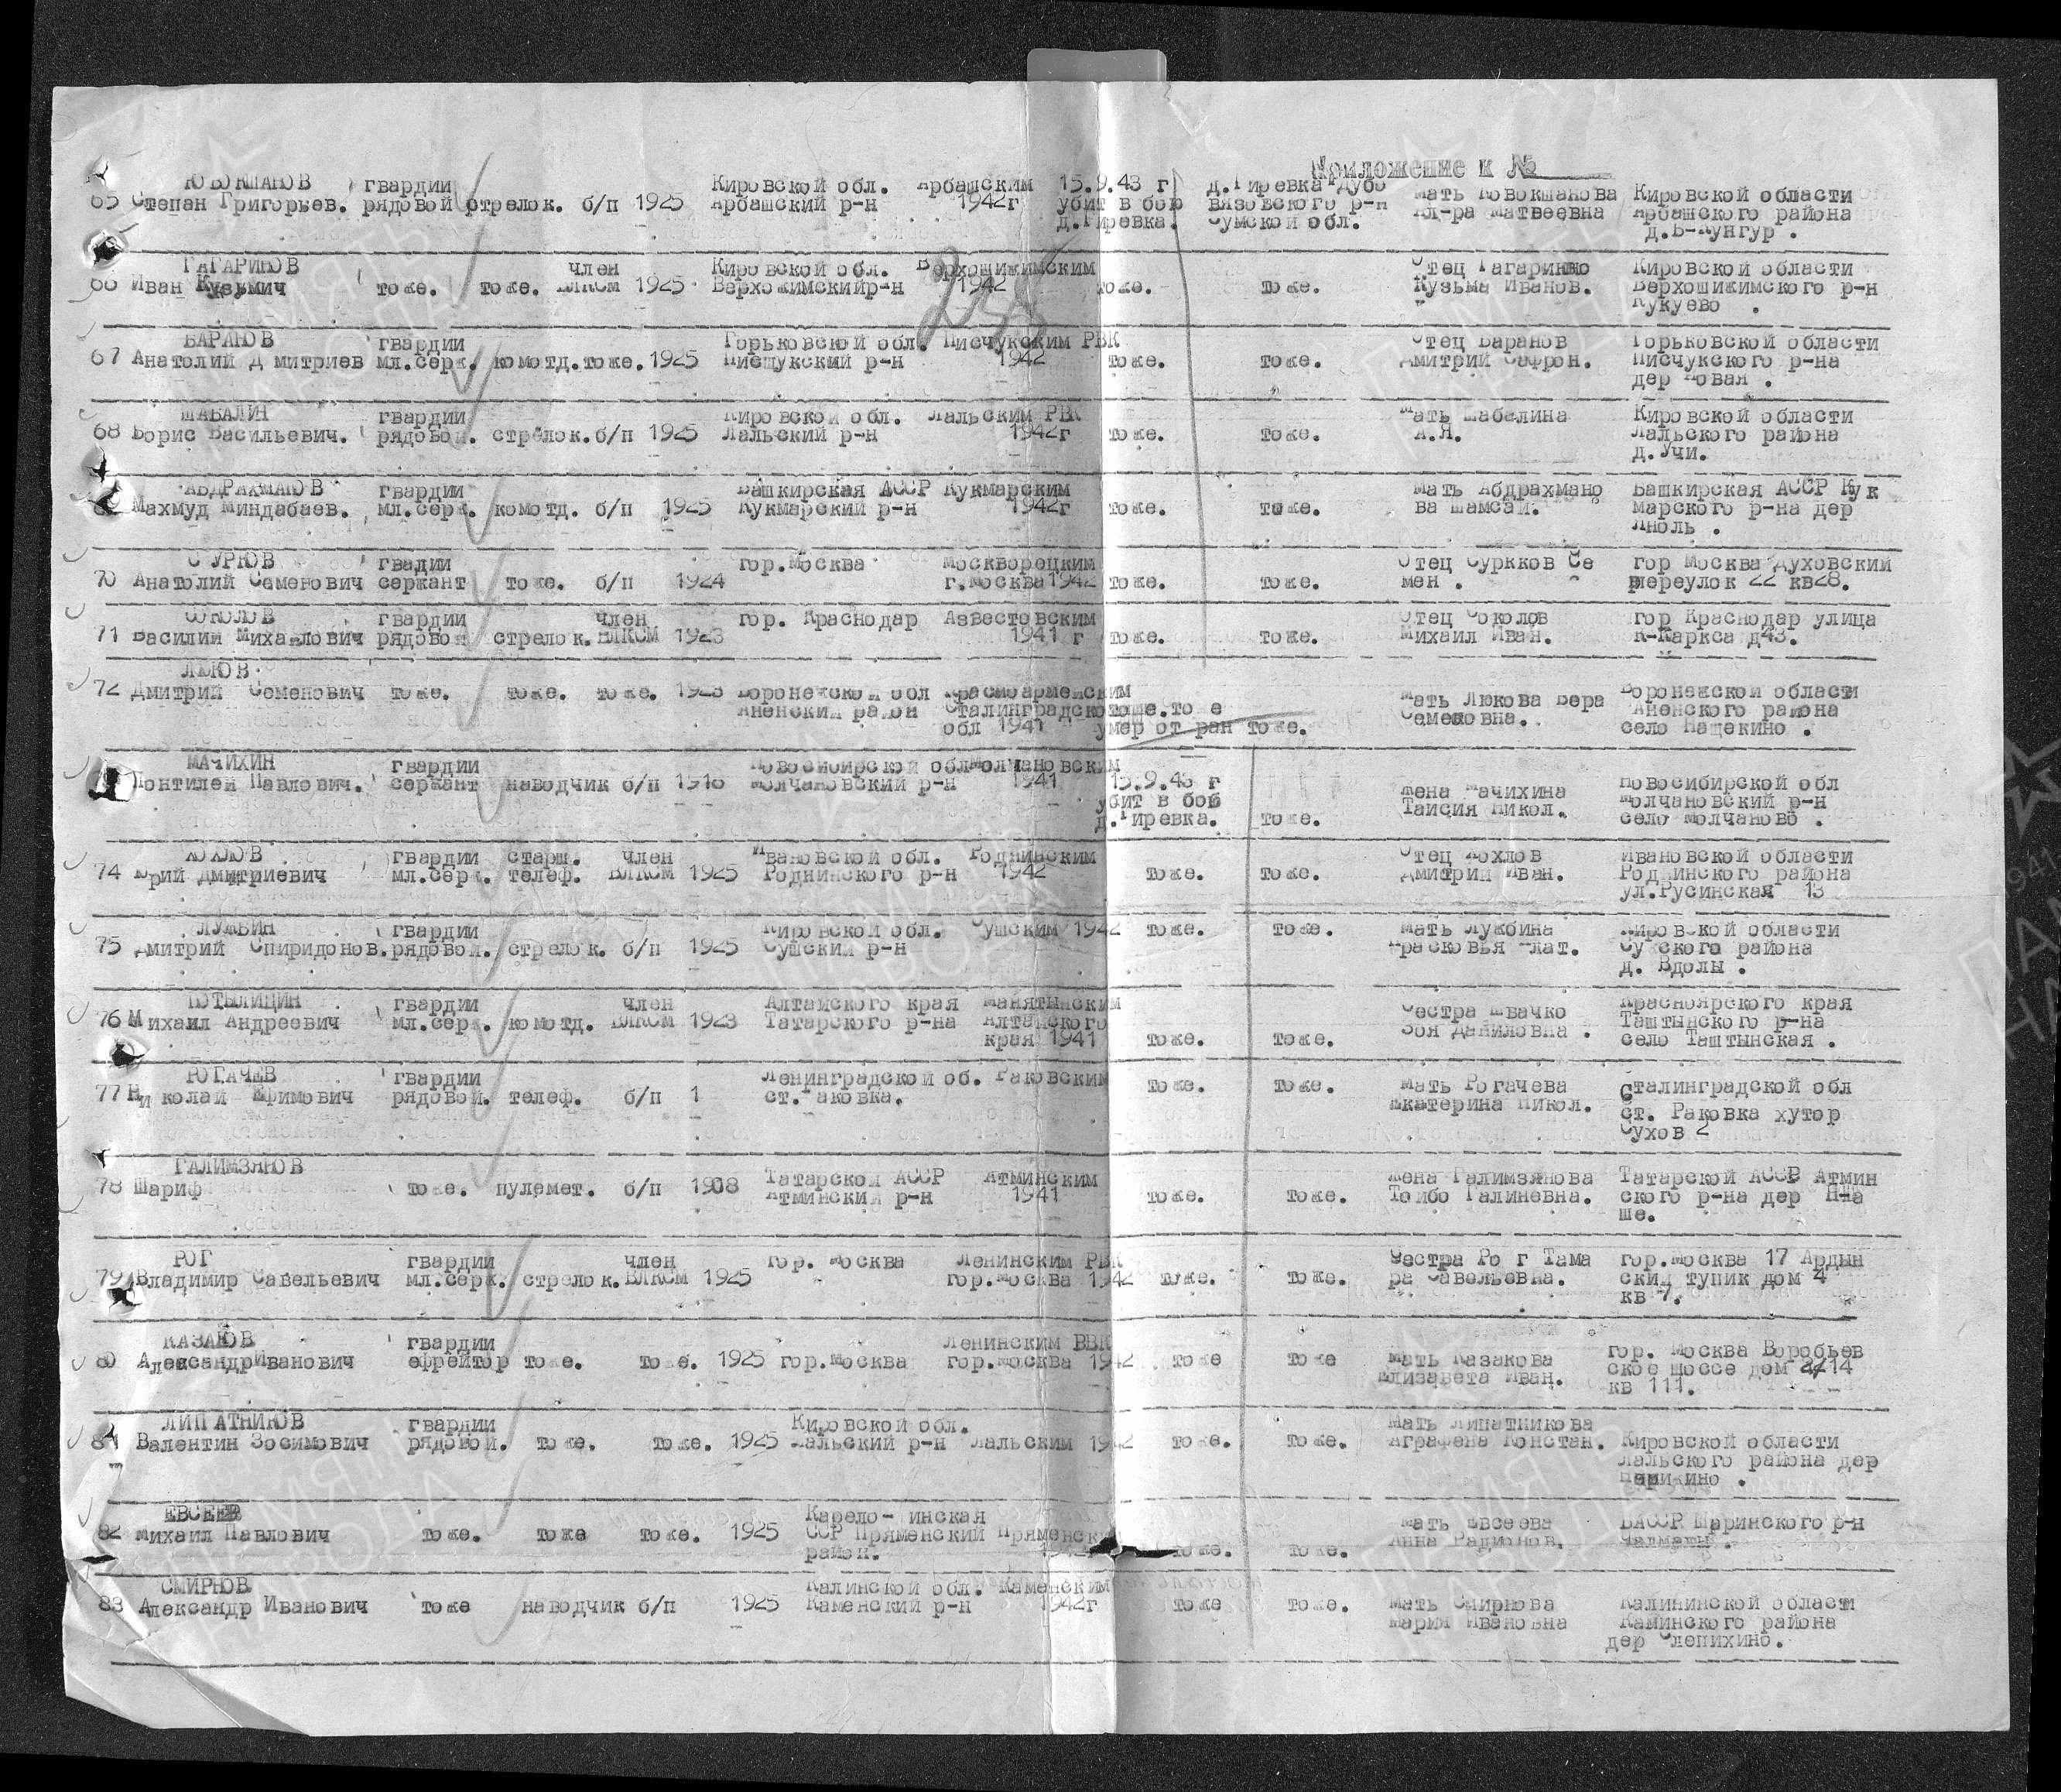 Приложение к №
КОВОКШАНОВ гвардии Кировской обл. Арбашским 15.9.43 г д.Гиревка Дубо Мать Ковокшанова Кировской области
65 Степан Григорьев. рядовой стрелок. б/п 1925 Арбашский р-н 1942г убит в бою вязовского р-н Матвеевна Арбашского района
д.Гиревка. Сумской обл. д.Б-Кунгур .
ГАГАРИНОВ член Кировской обл. Верхошижимским Отец Кировской области
66 Иван Кузьмич тоже. тоже. ВЛКСМ 1925 р-н 1942 тоже. тоже. Кузьма Иванов. Верхошижимского р-н
Кукуево .
БАРАНОВ гвардии Горьковской обл. Писчукским РВК Отец Баранов Горьковской области
67 Анатолий Дмитриев мл.серж. комотд. тоже. 1925 Писцукский р-н 1942 тоже. тоже. Дмитрий Сафрон. Писчукского р-на
дер Новая .
ШАБАЛИН гвардии Кировской обл. Лальским РВК Мать Шабалина Кировской области
68 Борис Васильевич. рядовой. стрелок. б/п 1925 Лальский р-н 1942г тоже. тоже. Лальского района
д.Учи.
АБДРАХМАНОВ гвардии Башкирская АССР Кукмарским Мать Абдрахмано Башкирская АССР Кук
69 Махмуд Миндабаев. мл.серж. комотд. б/п 1925 Кукмарский р-н 1942г тоже. тоже. ва Шамсай. марского р-на дер
СУРКОВ гвадии гор.Москва Москворецким Отец Суркков Се гор Москва Духовский
70 Анатолий Семенович сержант тоже. б/п 1924 г.Москва 1942 тоже. тоже. мен . переулок 22 кв28.
СОКОЛОВ гвардии член гор. Краснодар Азвестовским Отец Соколов гор Краснодар улица
71 Василий Михайлович рядовой стрелок. ВЛКСМ 1923 1941 г тоже. тоже. Михаил Иван. К-Каркса д43.
ЛЮКОВ
72 Дмитрий Семенович тоже. тоже. тоже. 1923 Воронежской обл Красноармейским Мать Люкова Вера Воронежской области
Аненский район Сталинградско тоже.то е Семеновна. Аненского района
обл 1941 умер от ран тоже. село Нащекино .
МАЧИХИН гвардии Новосибирской обл Молчановским
Понтилей Павлович. сержант наводчик б/п 1918 Молчановский р-н 1941 15.9.43 г Жена Мачихина Новосибирской обл
убит в бою Таисия Никол. Молчановский р-н
д.Гиревка. тоже. село Молчаново .
ХОХЛОВ гвардии старш. член Ивановской обл. Роднинским Отец Хохлов Ивановской области
74 Юрий Дмитриевич мл.серж. телеф. ВЛКСМ 1925 Роднинского р-н 1942 тоже. тоже. Дмитрий Иван. Роднинского района
ул.Русинская 13
ЛУЖБИН гвардии Кировской обл. Сушским 1942 тоже. тоже. Мать Лужбина Кировской области
75 Дмитрий Спиридонов. рядовой. стрелок. б/п 1925 Сушский р-н Прасковья Плат. района
д. Вдолы .
ПОТЫЛИЦИН гвардии член Алтайского края Манятынским Сестра Швачко Красноярского края
76 Михаил Андреевич мл.серж. комотд. ВЛКСМ 1923 Татарского р-на Алтайского Зоя Даниловна . Таштынского р-на
края 1941 тоже. тоже. село Таштынская .
РОГАЧЕВ гвардии Ленинградской об. Раковским тоже. тоже. Мать Рогачева Сталинградской обл
77 Николай Ефимович рядовой. телеф. б/п 1 ст.Раковка. Екатерина Никол. ст. Раковка хутор
Сухов 2
ГАЛИМЗЯНОВ Татарской АССР Атминским Жена Галимзянова Татарской АССР Атмин
78 Шариф тоже. пулемет. б/п 1908 Атминский р-н 1941 тоже. тоже. Тойбо Галиневна. ского р-на дер Н-а
ше.
РОГ гвардии член гор. Москва Ленинским РВК Сестра Ро г Тама гор.Москва 17 Ардын
79 Владимир Савельевич мл.серж. стрелок. ВЛКСМ 1925 гор.Москва 1942 тоже. тоже. ра Савельевна. ский тупик дом 4
кв 7.
КАЗАКОВ гвардии Ленинским РВК гор. Москва Воробьев
80 Александр Иванович ефрейтор тоже. тоже. 1925 гор.Москва гор.Москва 1942 тоже тоже Мать Казакова ское шоссе дом 4/14
Елизавета Иван. кв 111.
ЛИПАТНИКОВ гвардии Кировской обл. Мать Липатникова
81 Валентин Зосимович рядовой. тоже. тоже. 1925 Лальский р-н Лальским 1942 тоже. тоже. Аграфена Констан. Кировской области
Лальского района дер
ЕВСЕЕВ Карело- инская
82 Михаил Павлович тоже. тоже тоже. 1925 ССР Пряменский Пряменск Мать Евсеева БАССР Шаринского р-н
район. тоже. тоже. Анна Радионов.
СМИРНОВ Калинской обл. Каменским
83 Александр Иванович тоже наводчик б/п 1925 Каменский р-н 1942г тоже тоже. Мать Смирнова Калининской области
Мария Ивановна Каминского района
дер Слепихино.
255